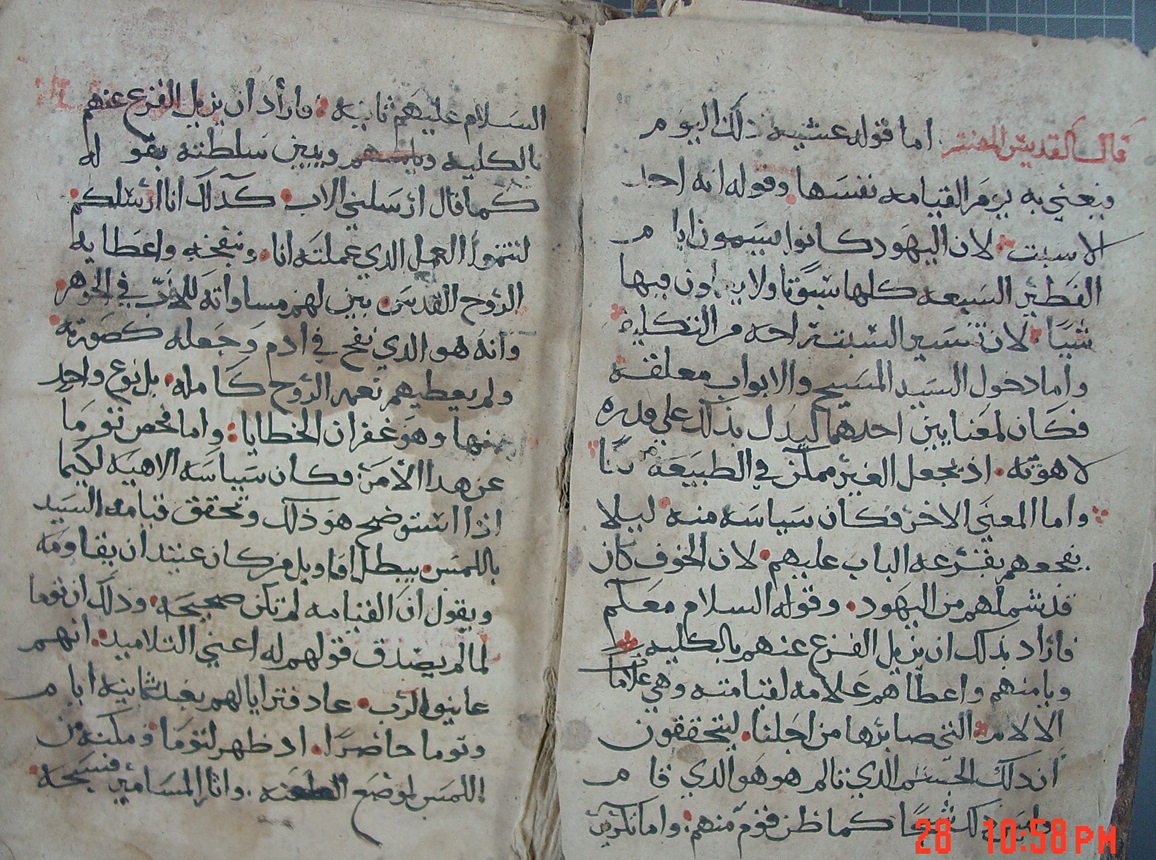 قال القديس المفسر اما قوله عشيه ذلك اليوم
فيعني به يوم القيامه نفسها وقوله انه احد
الاسبت لان اليهود كانوا يسمون ايام
الفطير السبعه كلها سبوتا ولا يبدون فيها
شيا لان تفسير السبت راحه من التكليف
واما دخول السيد المسيح والابواب مغلقه
فكان لمعنايين احدهما ليدل بذلك علي قدره
لاهوته اذ يجعل الغير ممكن في الطبيعه
واما المعني الاخر فكان سياسه منه ليلا
يفجعهم بقرعه الباب عليهم لان الخوف كان
قد شملهم من اليهود وقوله السلام معكم
فاراد بذلك ان يزيل الفزع عنهم بالكليه
ويامنهم واعطاهم علامه لقيامته وهي علاما
الالام التي صابرها من اجلنا ليتحققون
ان ذلك الجسم الذي تالم هو هو الذي قام
وليس ذلك شبحا كما ظن قوم منهم واما تكرير
السلام عليهم ثانيه فاراد ان يزيل الفزع عنهم
بالكليه ويامنهم ويبين سلطته بقوله
كما قال ارسلني الاب كذلك انا ارسلكم
لتتموا العمل الذي عملته انا وبنفخه واعطايه
الروح القدس بين لهم مساواته للاب في الجوهر
وانه هو الذي نفخ في ادم وجعله كصورته
ولم يعطيهم نعمه الروح كامله بل نوع واحد
منها وهو غفران الخطايا واما فحص توما
عن هدا الامر فكان سياسه الاهيه لكيما
اذا استوضح هو ذلك وتحقق قيامه السيد
باللمس يبطل اقاويل من كان عتيد ان يقاومه
ويقول ان القيامه لم تكن صحيحه وذلك ان توما
لما لم يصدق قولهم له اعني التلاميد انهم
عاينوا الرب عاد فترايا لهم بعد ثمانيه ايام
وتوما حاضرا اد ظهر لتوما ومكنه من
اللمس لموضع الطعنه واثار المسامير فسبحه
28 10:58 PM